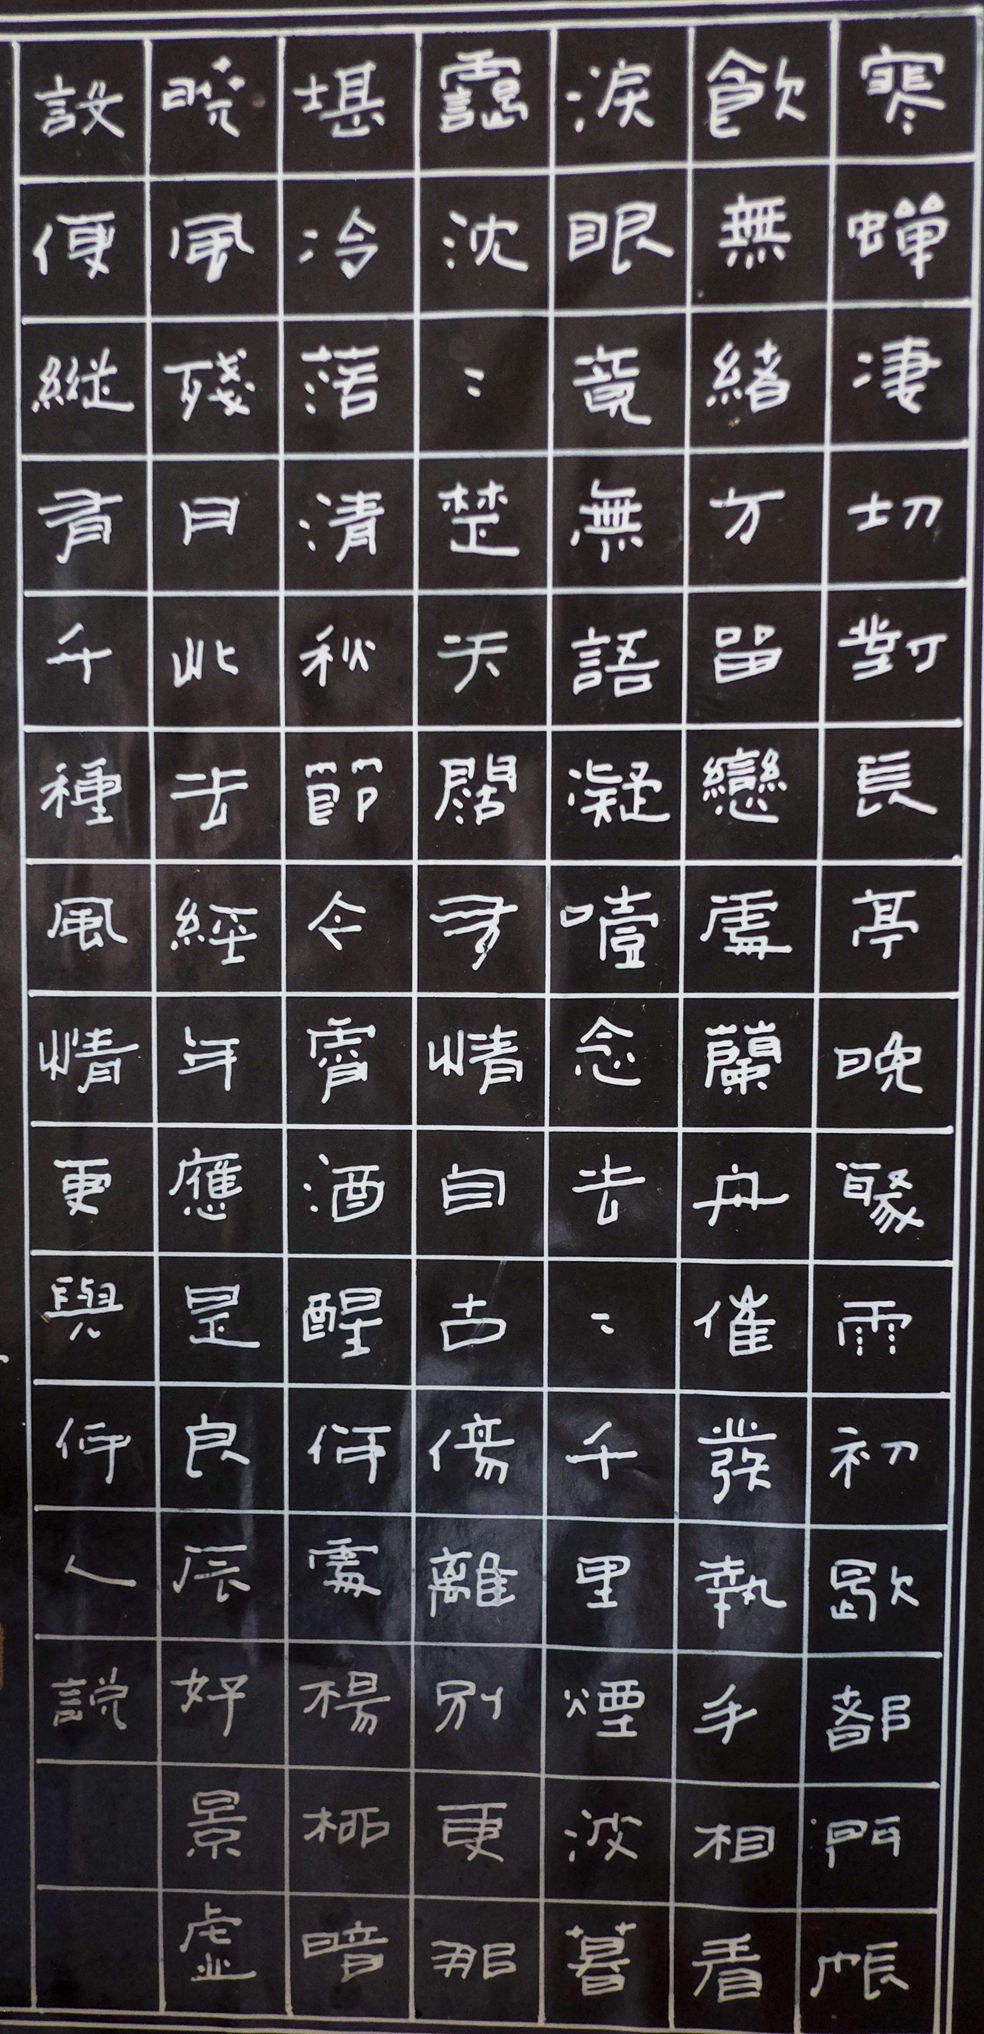 寒蟬凄切對長亭晚驟雨初歇都門帳
飲無緒方留戀處蘭舟催發執手相看
淚眼竟無語凝噎念去〻千里煙波暮
靄沈〻楚天闊多情自古傷離別更那
堪冷落清秋節今宵酒醒何處楊柳暗
曉風殘月此去經年應是良辰好景虛
設便縱有千種風情更與何人說